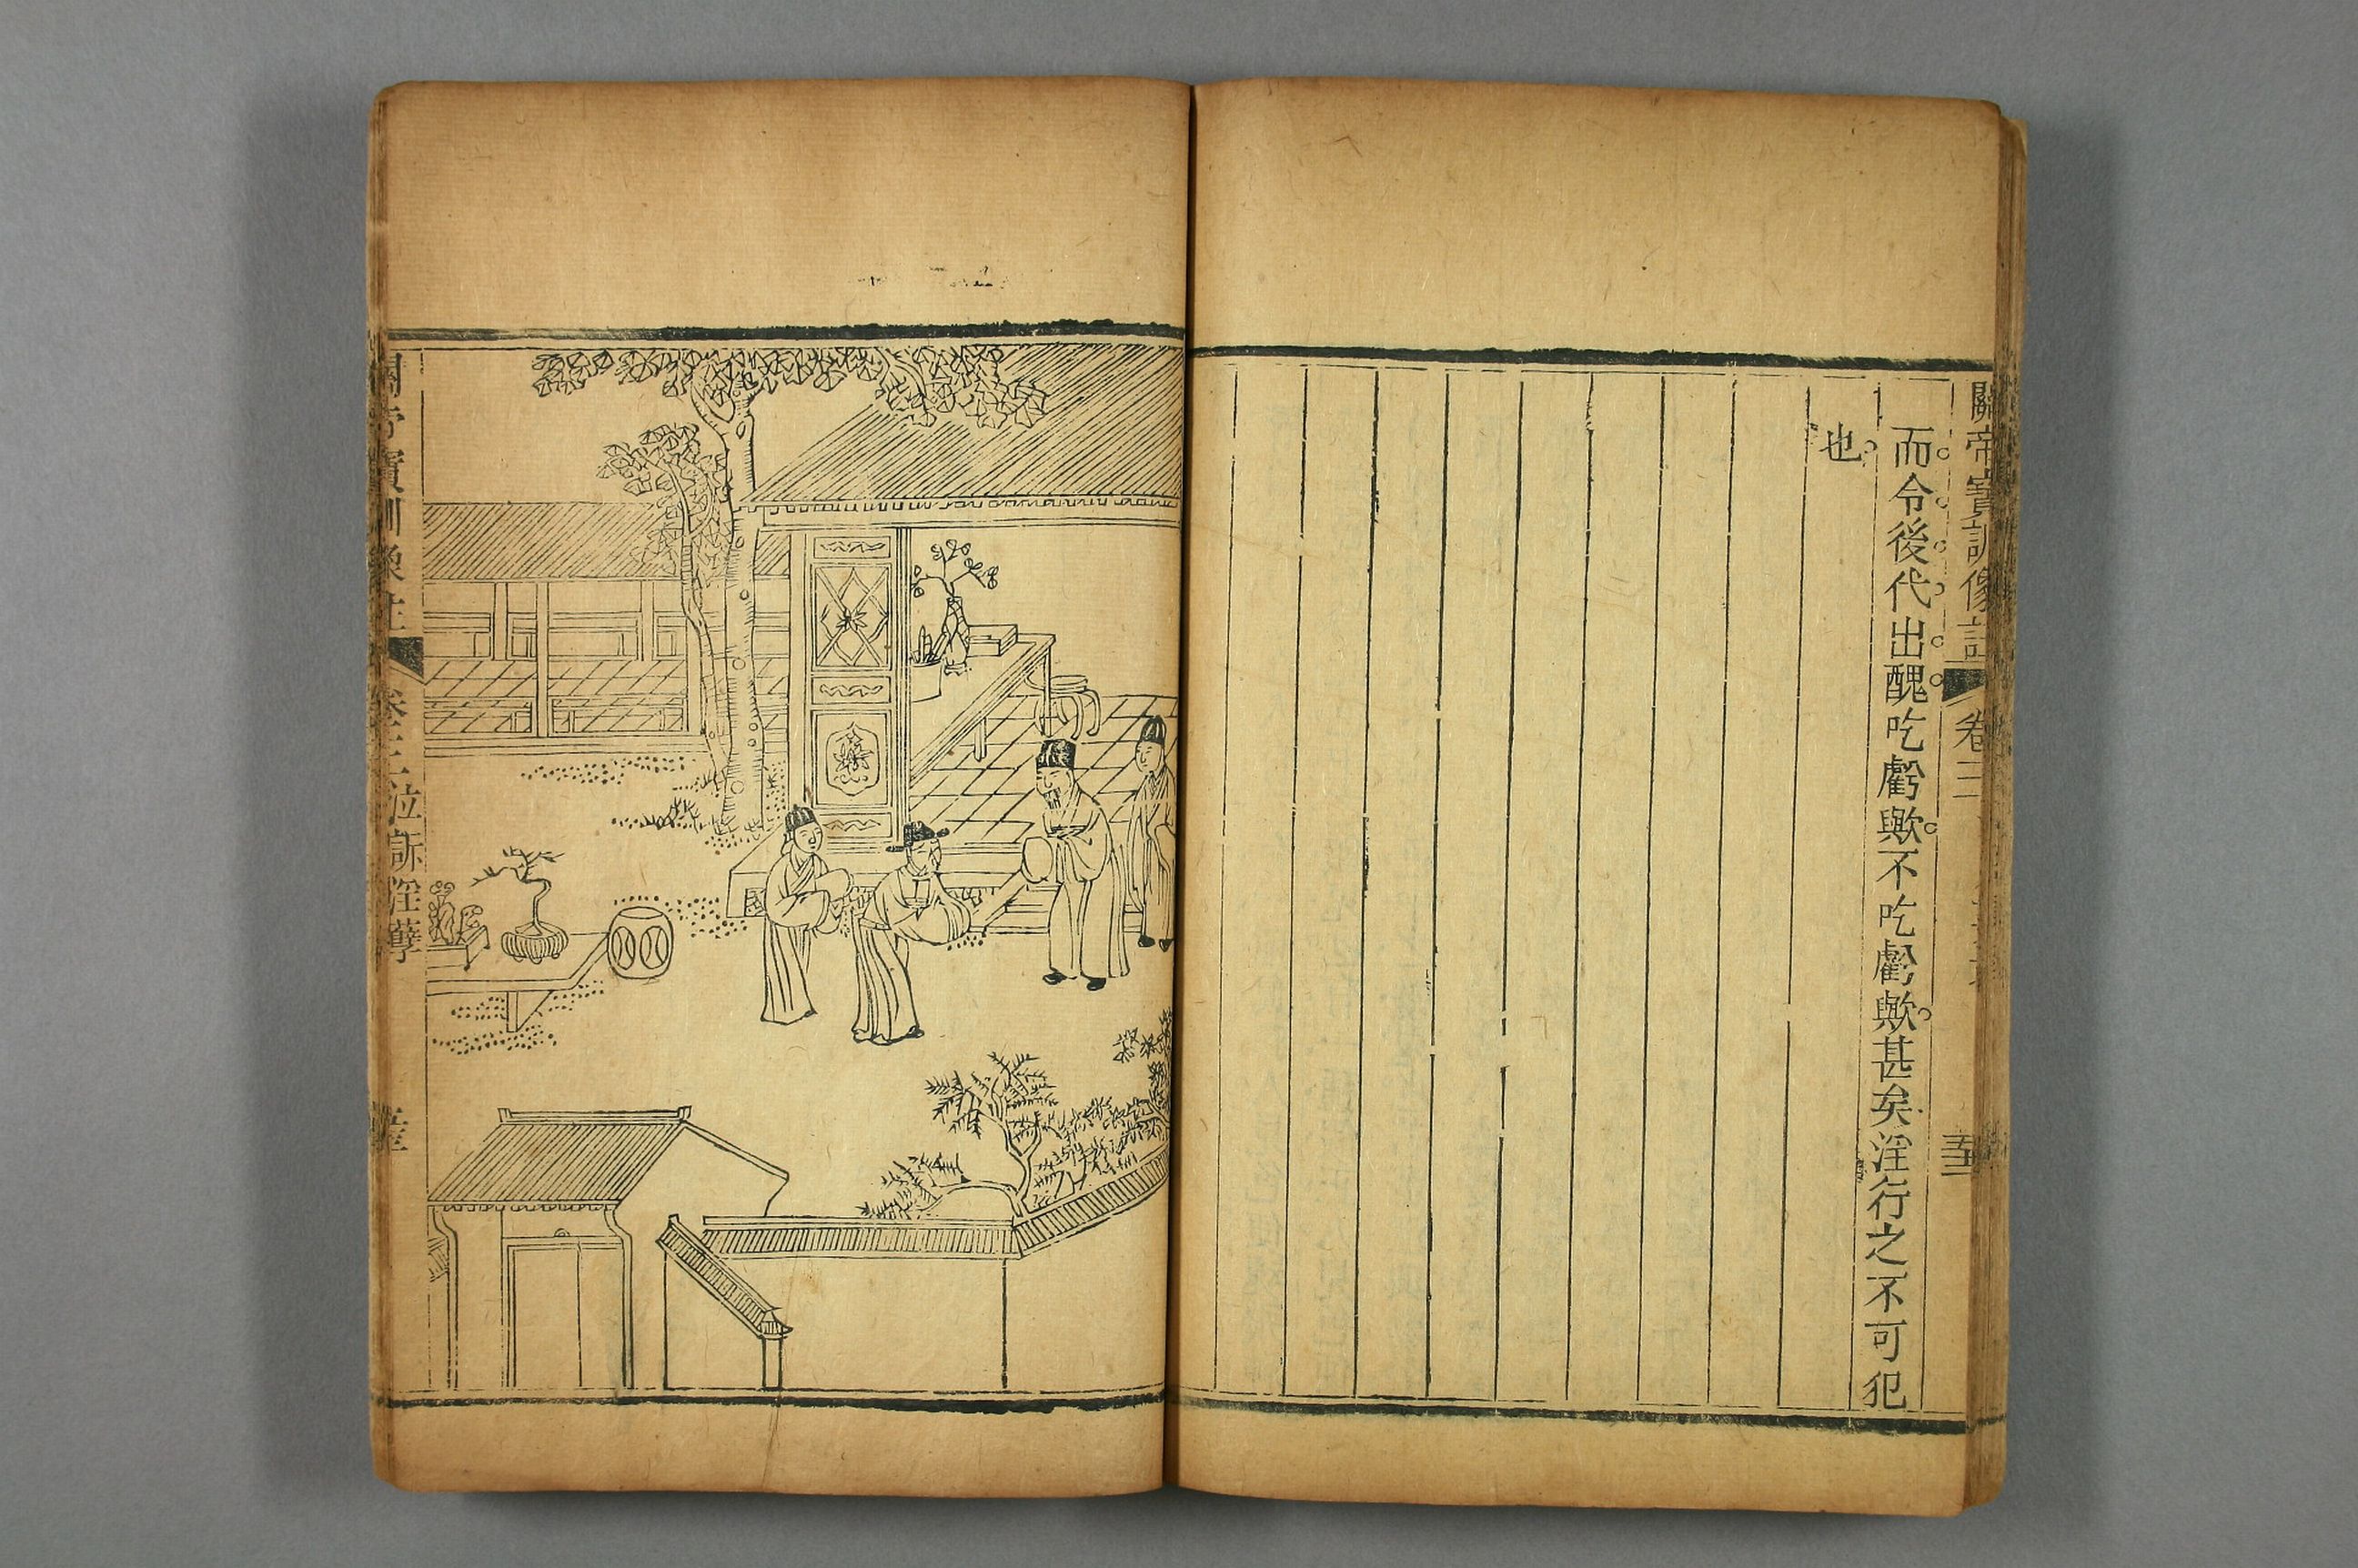 關帝寳訓像註 卷三
而令後代出醜吃虧歟不吃虧歟甚矣淫行之不可犯
也
關帝寳訓像註 卷三 泣訴淫孽